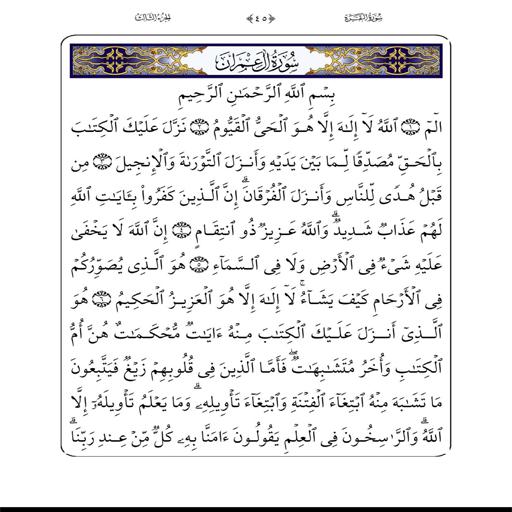 سُورَةُ البَقَرَةِ ﴿٤٥﴾ الجُزءُ الثَّالِثُ
سُورَةُ آلِ عِمْرَانَ
بِسْمِ ٱللَّهِ ٱلرَّحْمَـٰنِ ٱلرَّحِيمِ
الٓمٓ ۝١ ٱللَّهُ لَآ إِلَـٰهَ إِلَّا هُوَ ٱلْحَىُّ ٱلْقَيُّومُ ۝٢ نَزَّلَ عَلَيْكَ ٱلْكِتَـٰبَ
بِٱلْحَقِّ مُصَدِّقًا لِّمَا بَيْنَ يَدَيْهِ وَأَنزَلَ ٱلتَّوْرَىٰةَ وَٱلْإِنجِيلَ ۝٣ مِن
قَبْلُ هُدًى لِّلنَّاسِ وَأَنزَلَ ٱلْفُرْقَانَ ۗ إِنَّ ٱلَّذِينَ كَفَرُوا۟ بِـَٔايَـٰتِ ٱللَّهِ
لَهُمْ عَذَابٌ شَدِيدٌ ۗ وَٱللَّهُ عَزِيزٌ ذُو ٱنتِقَامٍ ۝٤ إِنَّ ٱللَّهَ لَا يَخْفَىٰ
عَلَيْهِ شَىْءٌ فِى ٱلْأَرْضِ وَلَا فِى ٱلسَّمَآءِ ۝٥ هُوَ ٱلَّذِى يُصَوِّرُكُمْ
فِى ٱلْأَرْحَامِ كَيْفَ يَشَآءُ ۚ لَآ إِلَـٰهَ إِلَّا هُوَ ٱلْعَزِيزُ ٱلْحَكِيمُ ۝٦ هُوَ
ٱلَّذِىٓ أَنزَلَ عَلَيْكَ ٱلْكِتَـٰبَ مِنْهُ ءَايَـٰتٌ مُّحْكَمَـٰتٌ هُنَّ أُمُّ
ٱلْكِتَـٰبِ وَأُخَرُ مُتَشَـٰبِهَـٰتٌ ۖ فَأَمَّا ٱلَّذِينَ فِى قُلُوبِهِمْ زَيْغٌ فَيَتَّبِعُونَ
مَا تَشَـٰبَهَ مِنْهُ ٱبْتِغَآءَ ٱلْفِتْنَةِ وَٱبْتِغَآءَ تَأْوِيلِهِۦ ۗ وَمَا يَعْلَمُ تَأْوِيلَهُۥٓ إِلَّا
ٱللَّهُ ۗ وَٱلرَّٰسِخُونَ فِى ٱلْعِلْمِ يَقُولُونَ ءَامَنَّا بِهِۦ كُلٌّ مِّنْ عِندِ رَبِّنَا ۗ